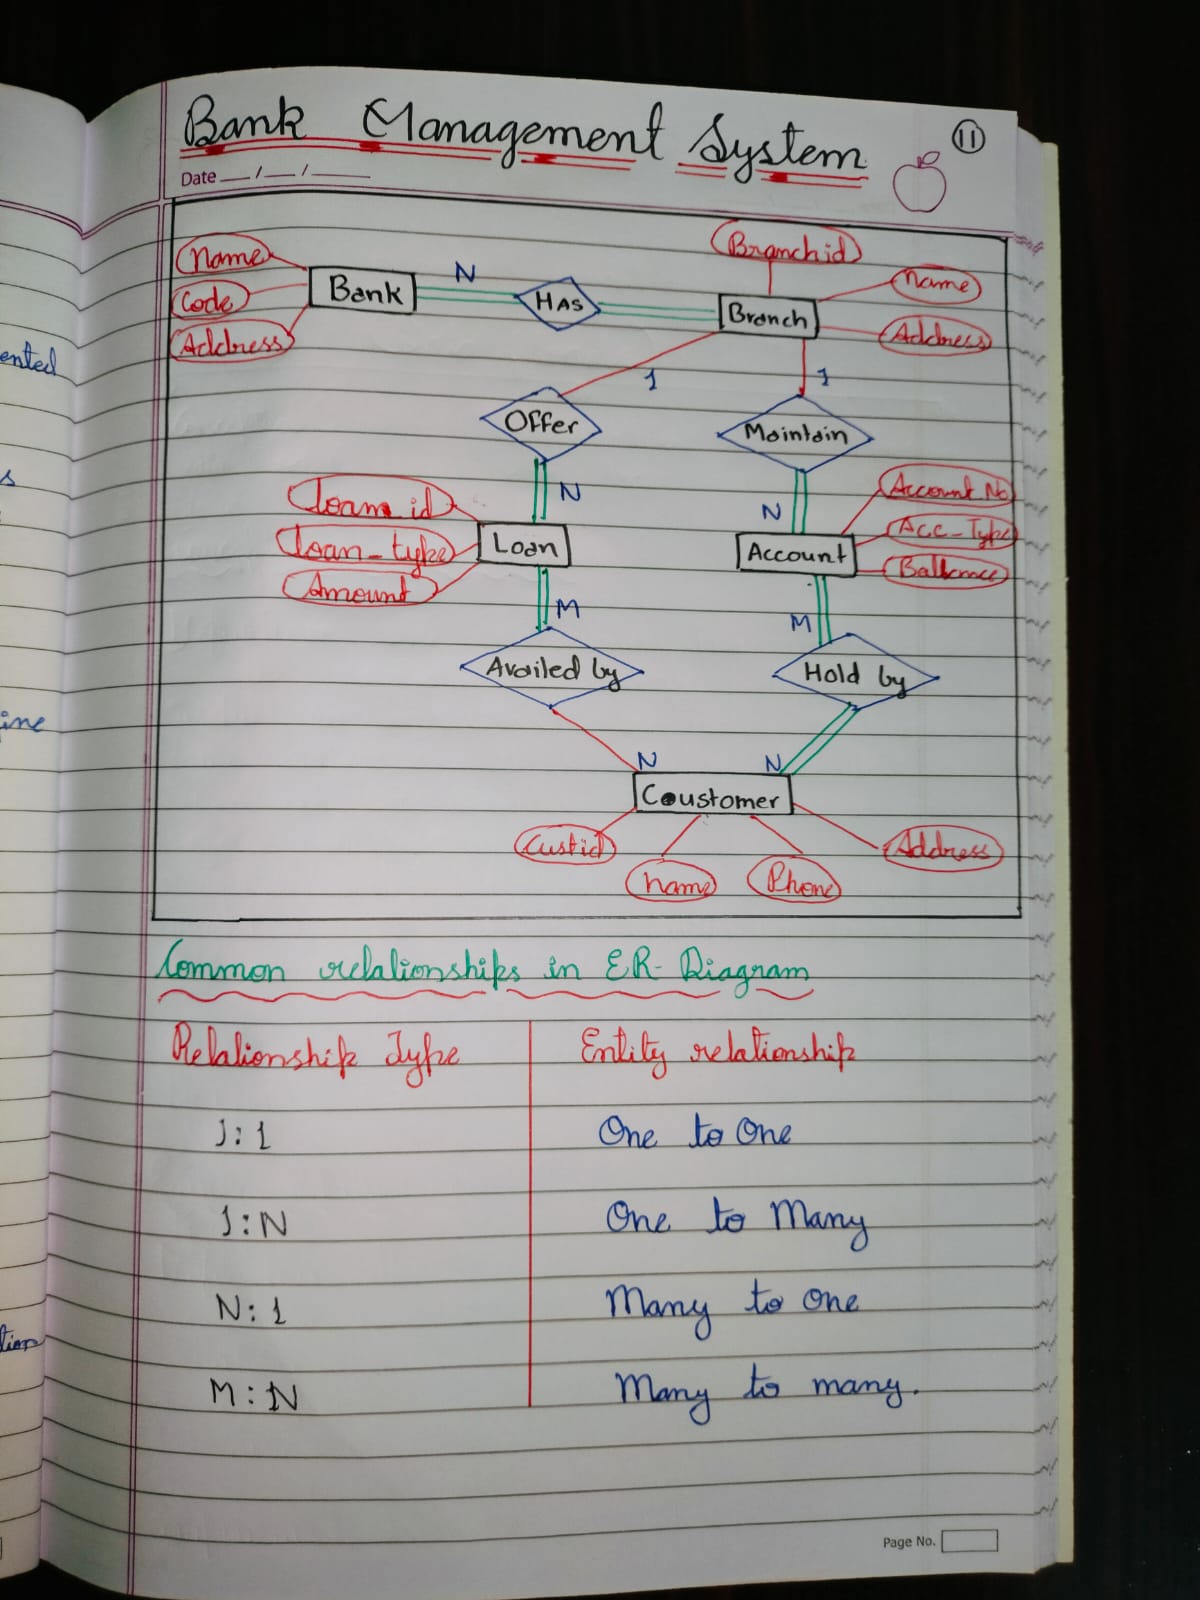 Bank Management System
11
Date __/__/____
Branchid
Name
Bank
N
HAS
Branch
Name
Code
Address
Address
1
1
Offer
Maintain
Loan_id
N
N
Account No
Loan_type
Loan
Account
Acc_Type
Amount
Ballance
M
M
Availed by
Hold by
N
N
Coustomer
Custid
Address
Name
Phone
Common relationships in ER-Diagram
Relationship Type Entity relationship
1:1 One to One
1:N One to Many
N:1 Many to One
M:N Many to many.
Page No.
ented
s
ine
tion